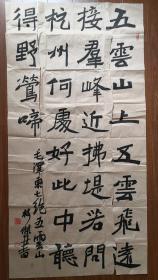 五雲山上五雲飛遠
接羣峰近拂堤若問
杭州何處好此中聽
得野鶯啼
毛澤東七絕五雲山
書